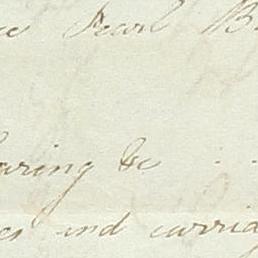 Pearl B
aring &c . .
es and carriag